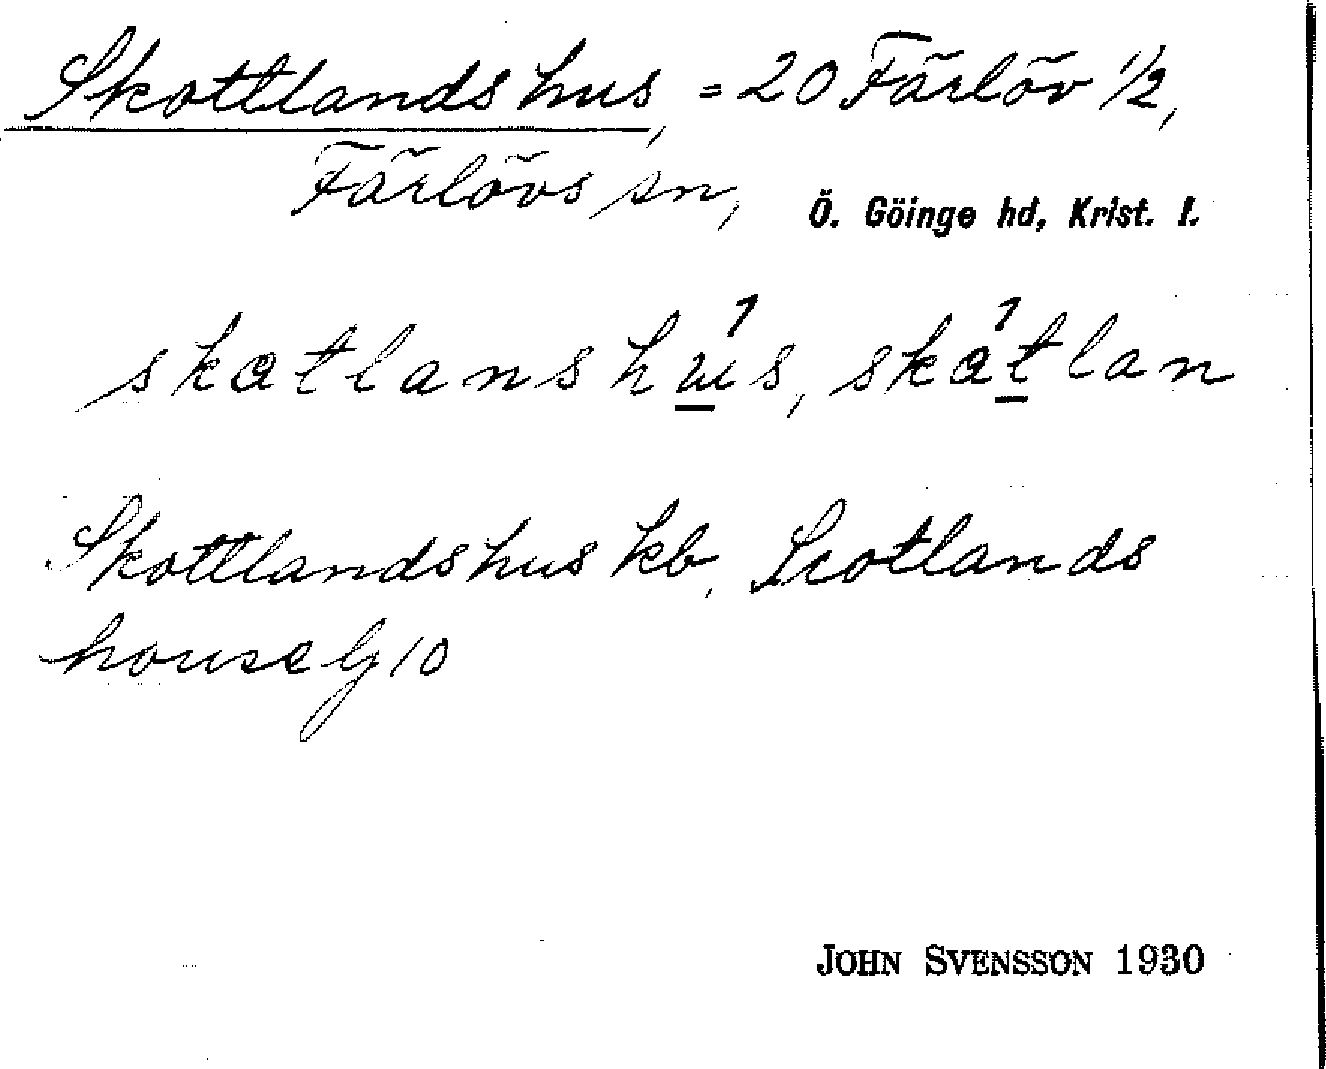 Skottlandshus, = 20 Färlöv 1/2,
Färlövs sn, Ö. Göinge hd, Krist. l.
skatlanshus, skatlan
Skottlandshus kb, Scotlands
house G 10
JOHN SVENSSON 1930